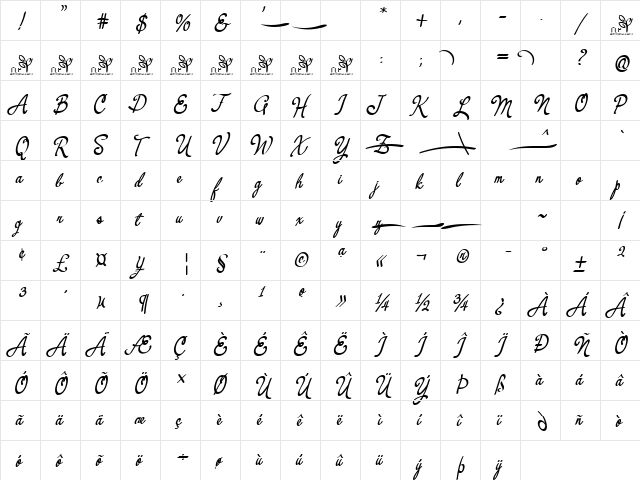 ! " # $ % & ' * + , - . /
: ; = ? @
A B C D E F G H I J K L M N O P
Q R S T U V W X Y Z \ ^ `
a b c d e f g h i j k l m n o p
q r s t u v w x y z ~ ¡
¢ £ ¤ ý ¦ § ¨ © ª « ¬ ® ¯ ° ± ²
³ ´ µ ¶ · ¸ ¹ º » ¼ ½ ¾ ¿ À Á Â
Ã Ä Å Æ Ç È É Ê Ë Ì Í Î Ï Ð Ñ Ò
Ó Ô Õ Ö × Ø Ù Ú Û Ü Ý Þ ß à á â
ã ä å æ ç è é ê ë ì í î ï ð ñ ò
ó ô õ ö ÷ ø ù ú û ü ý þ ÿ